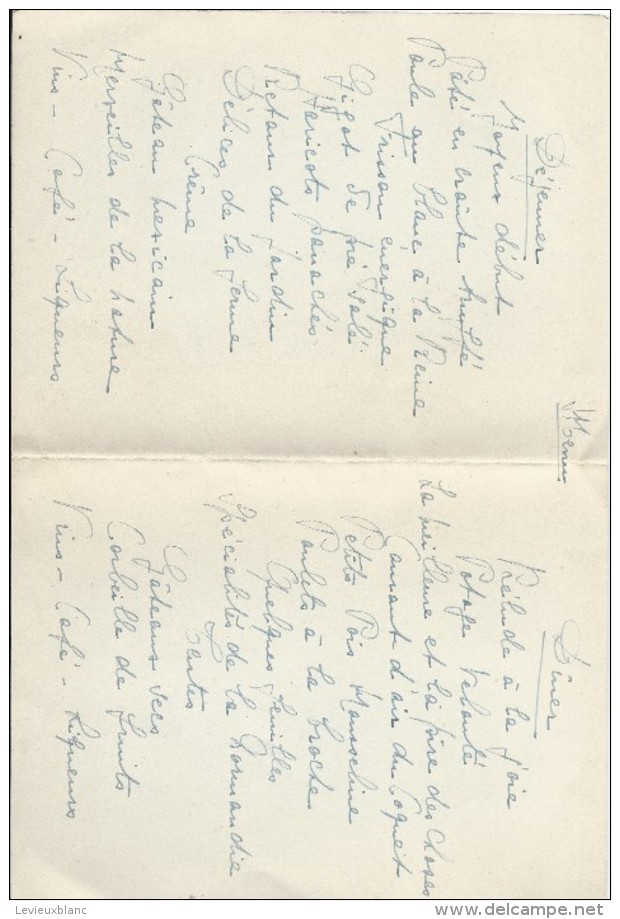 Menu
Déjeuner
Joyeux début
Pâté en croûte truffé
Poule au blanc à la Reine
Frisson énergique
Gigot de pré salé
Haricots panachés
Nectars du jardin
Délices de la ferme
Crème
Gâteau mexicain
Merveilles de la nature
Vins - Café - Liqueurs
Dîner
Prélude à la joie
Potage Velouté
La meilleure et la pire des choses
Courant d'air du Coquet
Petits Pois Mousseline
Poulets à la broche
Quelques feuilles
Spécialités de la Normandie
Tartes
Gâteaux secs
Corbeille de fruits
Vins - Café - Liqueurs
Levieuxblanc
www.delcampe.net